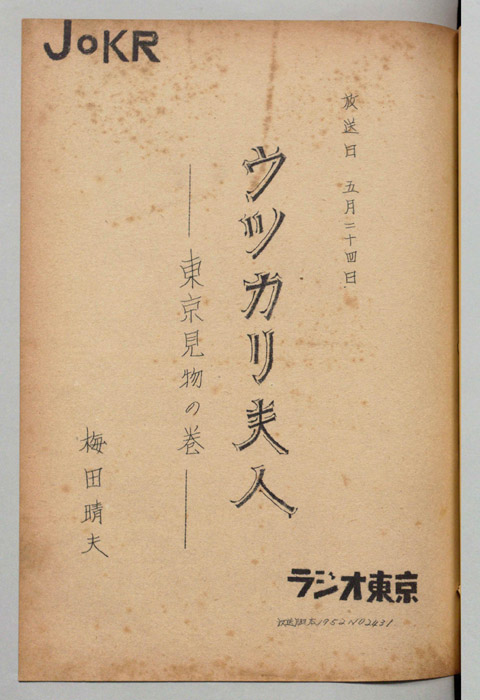 JOKR
放送日 五月二十四日
ウツカリ夫人
──東京見物の巻──
梅田晴夫
ラジオ東京
放送脚本1952 NO2431